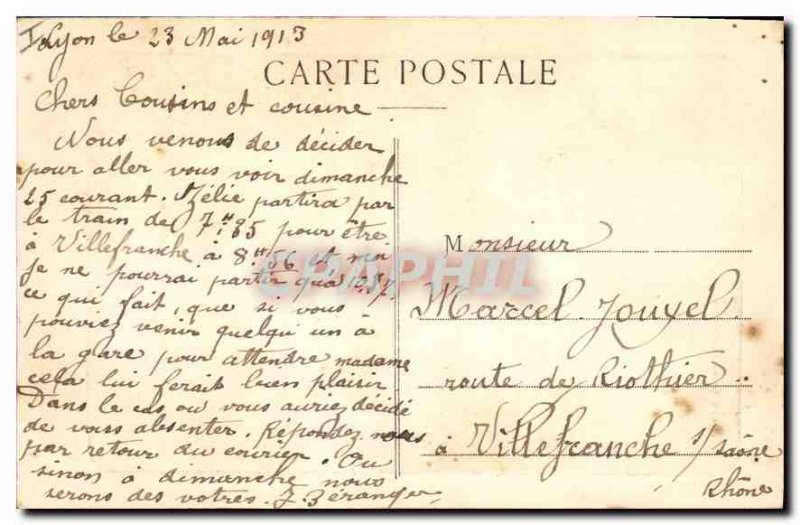 Lyon le 23 Mai 1913
CARTE POSTALE
Chers Cousins et cousine
Nous venons de décider
pour aller vous voir dimanche
25 courant. Zélie partira par
le train de 7H,35 pour être
à Villefranche à 8H56 et moi
je ne pourrai partir qu'à
ce qui fait, que si vous
pouviez venir quelqu'un à
la gare pour attendre madame
cela lui ferait bien plaisir
Dans le cas ou vous auriez décidé
de vous absenter. Répondez nous
par retour du courrier. Ou
sinon à dimanche nous
serons des votres. J. Béranger
Monsieur
Marcel Jouvel
route de Riottier
à Villefranche s/ Saône
Rhône
CARAPHIL